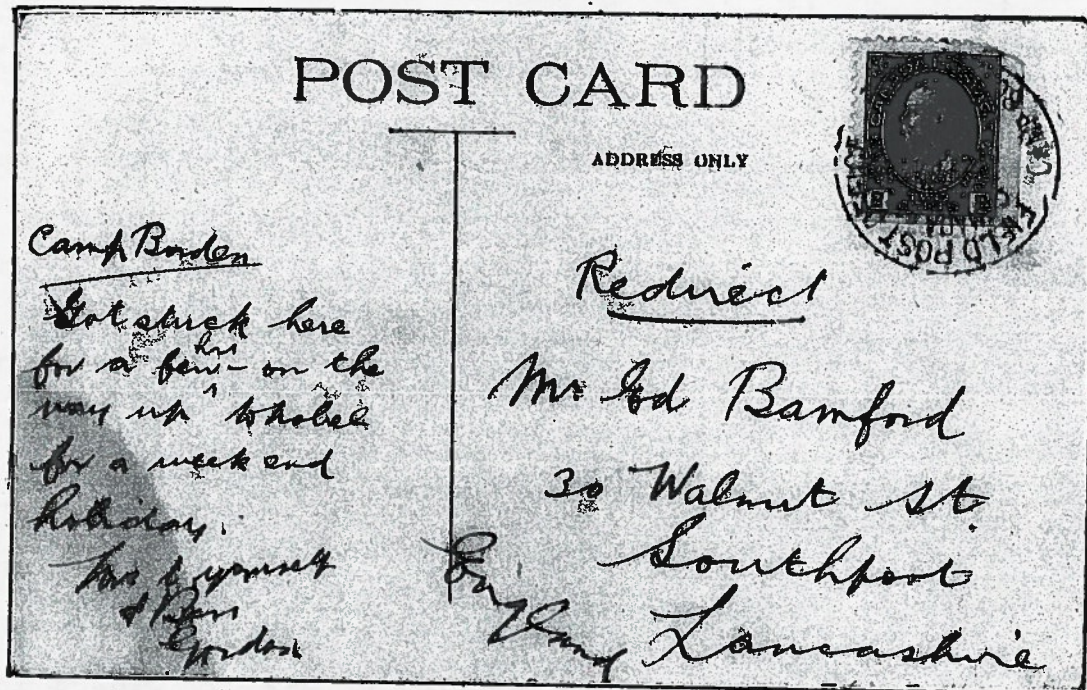 POST CARD
ADDRESS ONLY
CANADA POSTAGE
FIELD POST OFFICE
Camp Borden
Got stuck here
for a few hrs on the
way up
for a week end
holiday.
yourself
& Ben
Gordon
Redirect
Mr Ed Bamford
30 Walnut St.
Southport
Lancashire
England